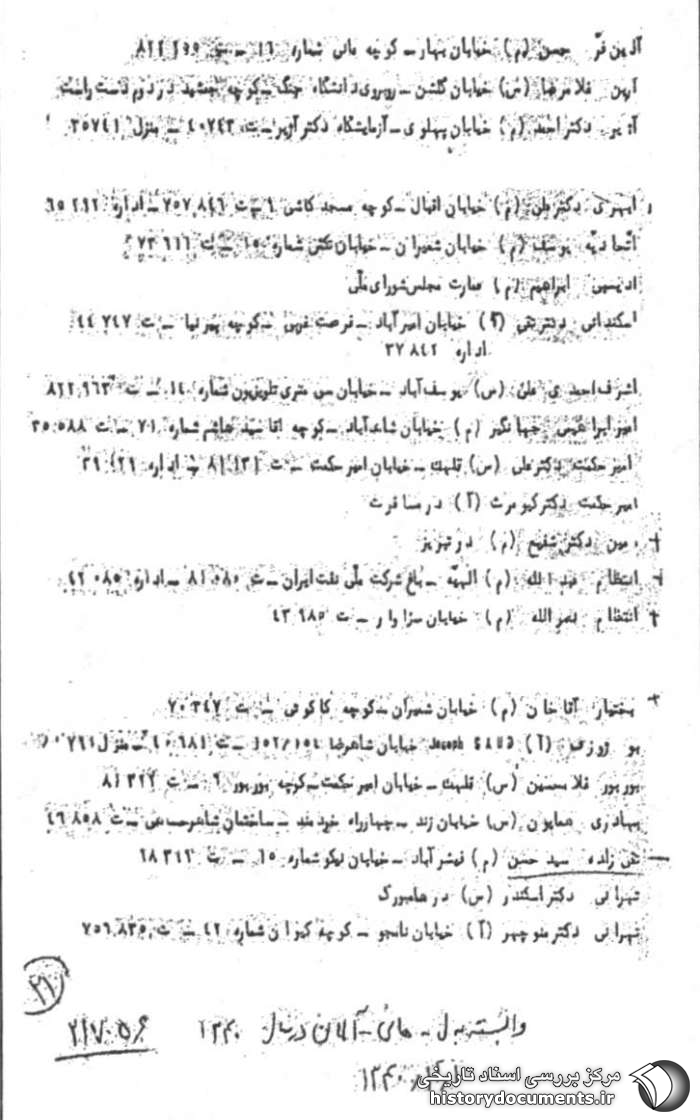 آذین فرّ حسن (م) خیابان بهار ـ کوچه مانی شماره ۱۶ ـ
آرین غلامرضا (س) خیابان گلشن ـ روبروی دانشگاه جنگ ـ کوچه جمشید در دوم دست راست
آژیر دکتر احمد (م) خیابان پهلوی ـ آزمایشگاه دکتر آژیر ـ ت ۴۰۷۴۳ ـ منزل ۳۵۷۴۱
ابهری دکتر علی (م) خیابان اقبال ـ کوچه مسجد کاشی ۶ ـ ت ۷۵۷۸۴۶ ـ اداره
اتحادیه یوسف (م) خیابان شمیران ـ خیابان شماره ۱۵ ـ ت ۷۳۶۱۱
ادیمی ابراهیم (م) عمارت مجلس شورای ملّی
اسکندانی دکتر تقی خیابان امیرآباد ـ فرصت غربی ـ کوچه پیرنیا ـ ت ۴۴۷۴۷
اداره ۳۷۸۴۲
اشرف احمدی علی (س) یوسف آباد ـ خیابان سی متری تلویزیون شماره ۱۴ ـ ت ۸۲۲۹۶۳
امیر ابراهیمی جهانگیر (م) خیابان شاه آباد ـ کوچه آقا سید هاشم شماره ۷۱ ـ ت ۳۵۵۸۸
امیر حکمت دکتر علی (س) قلهک ـ خیابان امیر حکمت ـ ت اداره
امیر حکمت دکتر کیومرث (آ) در مسافرت
+ امین دکتر شفیع (م) در تبریز
+ انتظام عبدالله (م) الهیّه ـ باغ شرکت ملّی نفت ایران ـ ت ۸۱۰۸۰ ـ اداره ۴۲۰۸۵
+ انتظام نصرالله (م) خیابان سزاوار ـ ت ۴۳۹۸۵
+ بختیار آقا خان (م) خیابان شمیران ـ کوچه کاکوئی ـ ت ۷۰۳۴۷
بو ژوزف (آ) Joseph خیابان شاهرضا ۱۵۲/۱۵۴ ـ ت ۴۰۶۸۱ ـ منزل
پورپور غلامحسین (س) قلهک ـ خیابان امیر حکمت ـ کوچه پورپور ۶ ـ ت ۸۱۳۲۲
بهادری همایون (س) خیابان زند ـ چهارراه خردمند ـ ساختمان ـ ت ۴۶۸۵۸
— تقی زاده سید حسن (م) قیصرآباد ـ خیابان نیکو شماره ۱۵ ـ ت ۶۸۳۱۲
تهرانی دکتر اسکندر (س) در هامبورگ
تهرانی دکتر منوچهر (آ) خیابان نامجو ـ کوچه کیوان شماره ۴۲ ـ ت ۷۵۶۸۳۵
۲۱
وابسته به ل ـ های ـ آلمان در سال ۱۳۴۰
۲۱۷۰۵۶
۱۳۴۰
مرکز بررسی اسناد تاریخی
historydocuments.ir